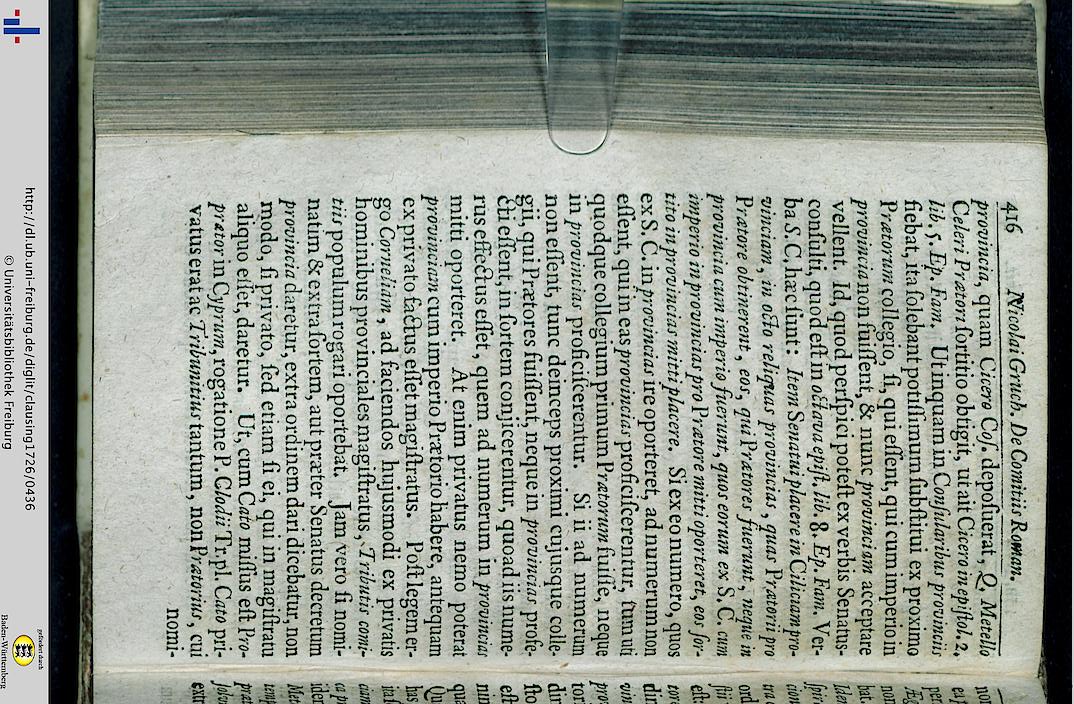 416 Nicolai Gruch. De Comitiis Roman.
provincia, quam Cicero Coſ. depoſuerat, Q. Metello
Celeri Prætori ſortitio obtigit, ut ait Cicero in epiſtol. 2.
lib. 5. Ep. Fam. Ut inquam in Conſularibus provinciis
fiebat, ita ſolebant potiſſimum ſubſtitui ex proximo
Prætorum collegio, ſi, qui eſſent, qui cum imperio in
provincia non fuiſſent, & nunc provinciam acceptare
vellent. Id, quod perſpici poteſt ex verbis Senatus-
conſulti, quod eſt in octava epiſt. lib. 8. Ep. Fam. Ver-
ba S. C. hæc ſunt: Item Senatui placere in Ciliciam pro-
vinciam, in octo reliquas provincias, quas Prætorii pro
Prætore obtinerent, eos, qui Prætores fuerunt, neque in
provincia cum imperio fuerunt, quos eorum ex S. C. cum
imperio in provincias pro Prætore mitti oporteret, eos ſor-
tito in provincias mitti placere. Si ex eo numero, quos
ex S. C. in provincias ire oporteret, ad numerum non
eſſent, qui in eas provincias proficiſcerentur, tum uti
quodque collegium primum Prætorum fuiſſe, neque
in provincias proficiſcerentur. Si ii ad numerum
non eſſent, tunc deinceps proximi cujusque colle-
gii, qui Prætores fuiſſent, neque in provincias profe-
cti eſſent, in ſortem conjicerentur, quoad is nume-
rus effectus eſſet, quem ad numerum in provincias
mitti oporteret. At enim privatus nemo poterat
provinciam cum imperio Prætorio habere, antequam
ex privato factus eſſet magiſtratus. Poſt legem er-
go Corneliam, ad faciendos hujusmodi ex privatis
hominibus provinciales magiſtratus, Tributis comi-
tiis populum rogari oportebat. Jam vero ſi nomi-
natim & extra ſortem, aut præter Senatus decretum
provincia daretur, extra ordinem dari dicebatur, non
modo, ſi privato, ſed etiam ſi ei, qui in magiſtratu
aliquo eſſet, daretur. Ut, cum Cato miſſus eſt Pro-
prætor in Cyprum, rogatione P. Clodii Tr. pl. Cato pri-
vatus erat ac Tribunitius tantum, non Prætorius, cui
nomi-
http://dl.ub.uni-freiburg.de/diglit/clausing1726/0436
© Universitätsbibliothek Freiburg
gefördert durch
Baden-Württemberg